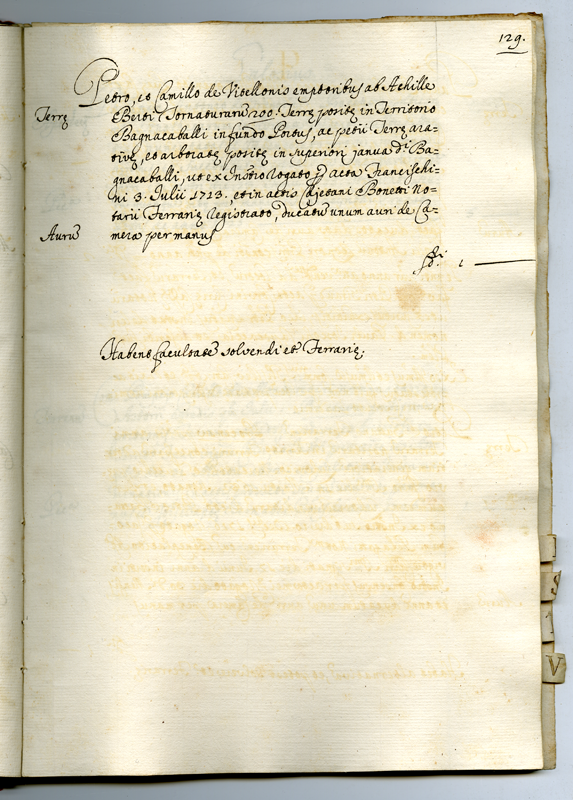 129.
Petro, et Camillo de Vitellonis emptoribus ab Achille
Terrę
Berti Tornaturarū 200. Terrę positę in Territorio
Bagnacaballi in fundo Portus, ac petii Terrę ara-
tivę, et arboratę positę in superiori janua dī Ba-
gnacaballi, ut ex Inst̄o rogato p acta Francischi-
ni 3. Julii 1713. et in actis Cajetani Bonetti No-
tarii Ferrarię registrato, ducatū unum auri de Ca-
Aurū
mera per manus
1
Habens facultatē solvendi et Ferrarię.
V